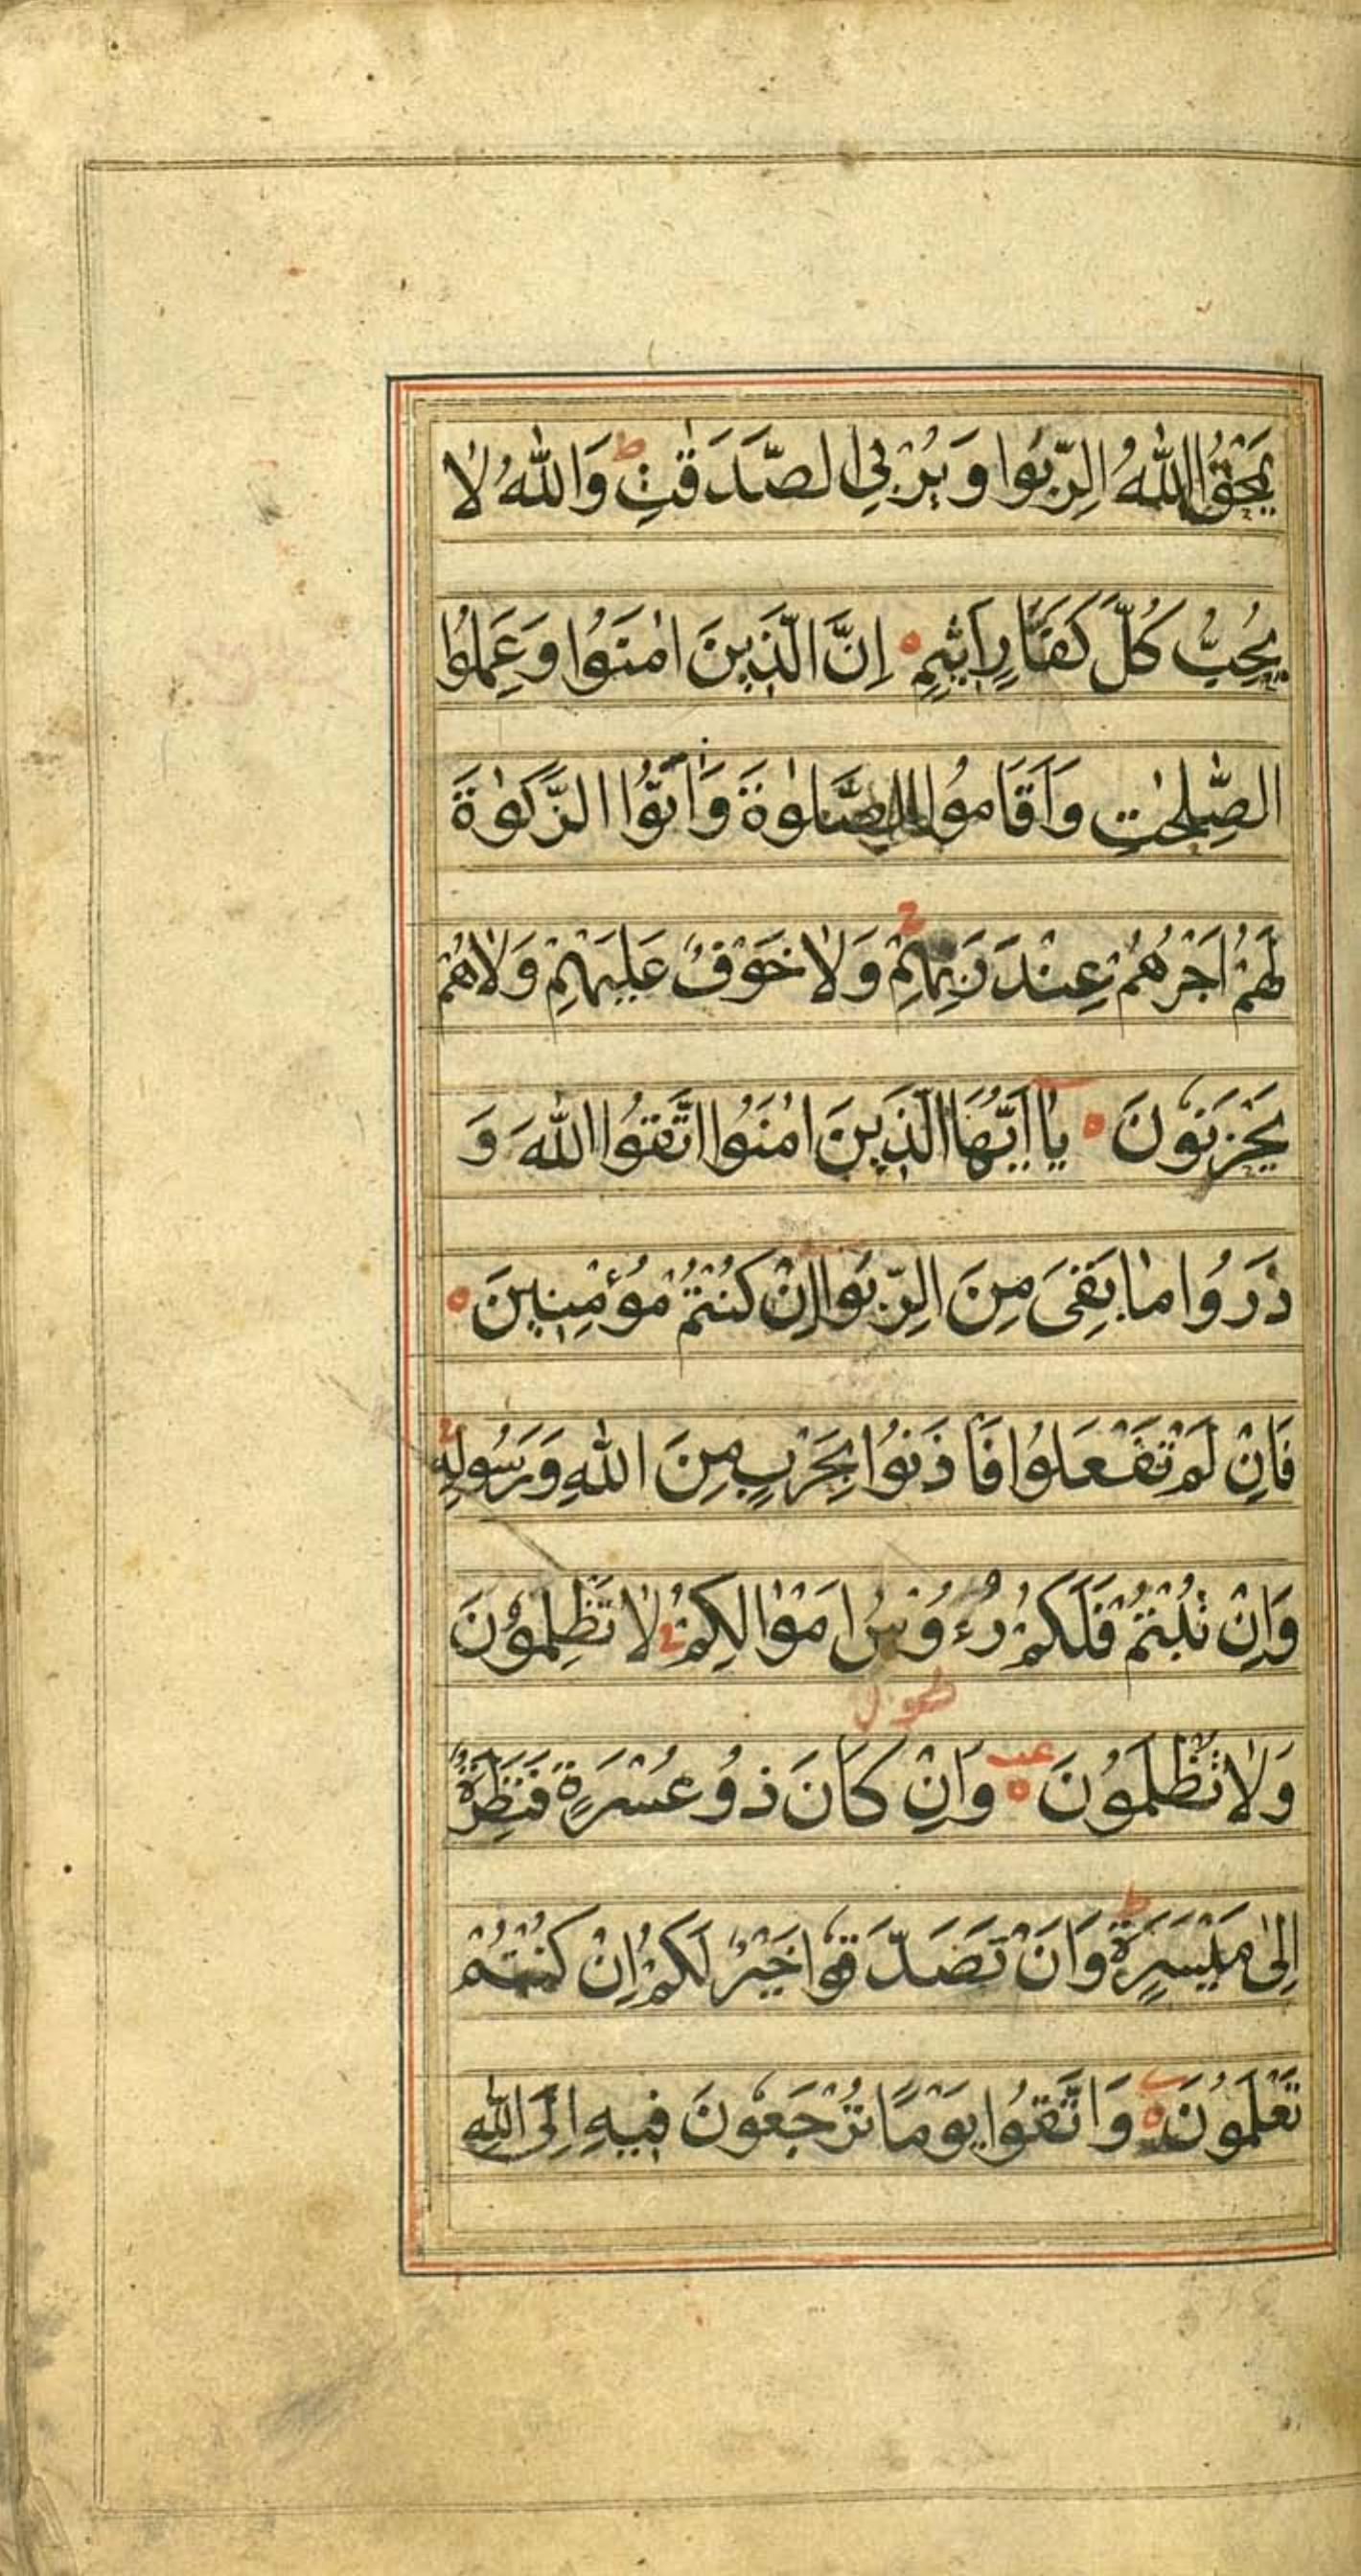 يَمْحَقُ اللّٰهُ الرِّبٰوا وَيُرْبِي الصَّدَقٰتِ ط وَاللّٰهُ لَا
يُحِبُّ كُلَّ كَفَّارٍ اَثِيمٍ ۝ اِنَّ الَّذِينَ اٰمَنُوا وَعَمِلُوا
الصّٰلِحٰتِ وَاَقَامُوا الصَّلٰوةَ وَاٰتَوُا الزَّكٰوةَ
لَهُمْ اَجْرُهُمْ عِنْدَ رَبِّهِمْ ج وَلَا خَوْفٌ عَلَيْهِمْ وَلَا هُمْ
يَحْزَنُونَ ۝ يٰا اَيُّهَا الَّذِينَ اٰمَنُوا اتَّقُوا اللّٰهَ وَ
ذَرُوا مٰا بَقِيَ مِنَ الرِّبٰوا اِنْ كُنْتُمْ مُؤْمِنِينَ ۝
فَاِنْ لَمْ تَفْعَلُوا فَأْذَنُوا بِحَرْبٍ مِنَ اللّٰهِ وَرَسُولِهِ ج
وَاِنْ تُبْتُمْ فَلَكُمْ رُءُوسُ اَمْوٰالِكُمْ ج لٰا تَظْلِمُونَ
وَلٰا تُظْلَمُونَ ۝ عب وَاِنْ كَانَ ذُو عُسْرَةٍ فَنَظِرَةٌ
اِلٰى مَيْسَرَةٍ ط وَاَنْ تَصَدَّقُوا خَيْرٌ لَكُمْ اِنْ كُنْتُمْ
تَعْلَمُونَ ۝ وَاتَّقُوا يَوْمًا تُرْجَعُونَ فِيهِ اِلَى اللّٰهِ